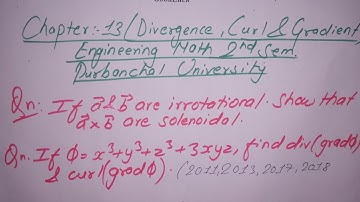 Chapter:-13/Divergence, Curl & Gradient
Engineering Math 2nd Sem.
Purbanchal University
Qn: If a⃗ & b⃗ are irrotational. Show that
a⃗ x b⃗ are solenoidal.
Qn. If ϕ = x³+y³+z³+3xyz, find div(gradϕ)
& curl(gradϕ). (2011,2013,2017,2018